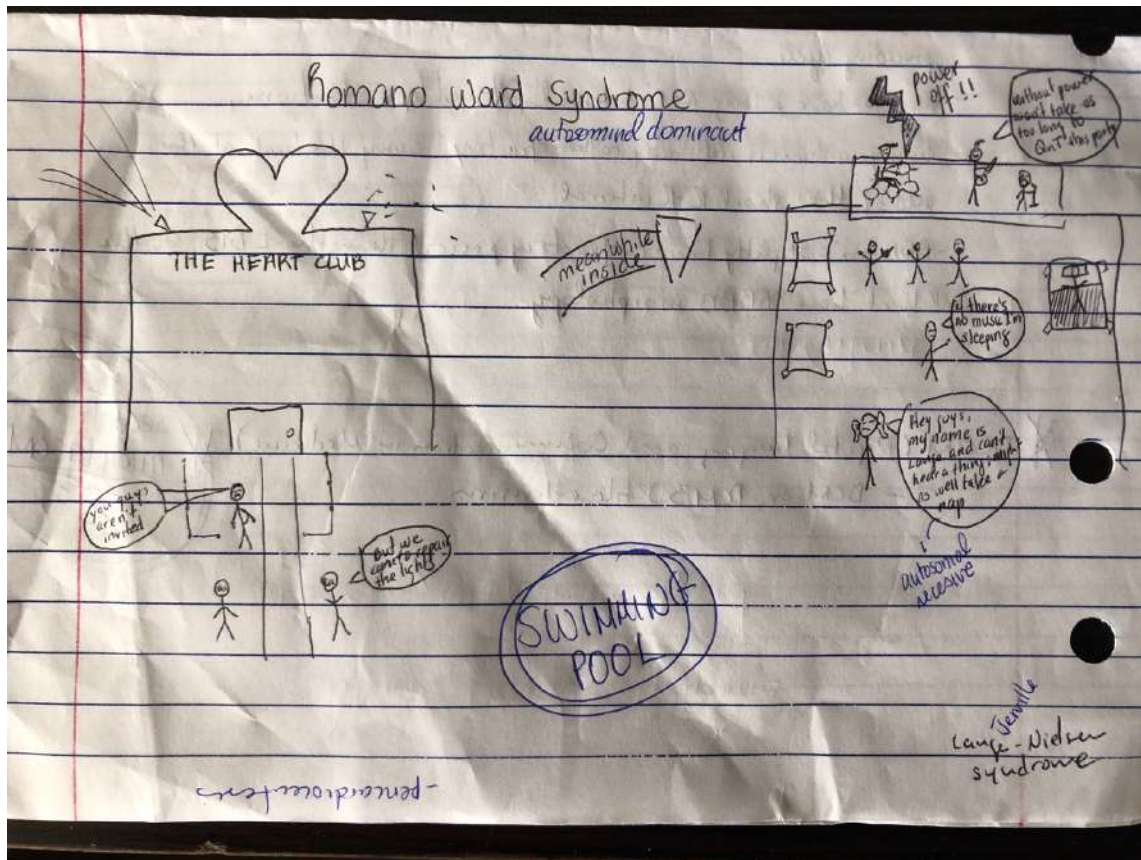 Romano Ward Syndrome
autosomind dominant
power
off!!
without power
won't take us
too long to
QnT this party
THE HEART CLUB
meanwhile
inside
if there's
no music I'm
sleeping
Hey guys,
my name is
Lange and can't
hear a thing, might
as well take a
nap
autosomal
recesive
you guys
aren't
invited
But we
came to repair
the lights
SWIMMING
POOL
Jerville
Lange-Nielsen
syndrome
-pericardiocenteses